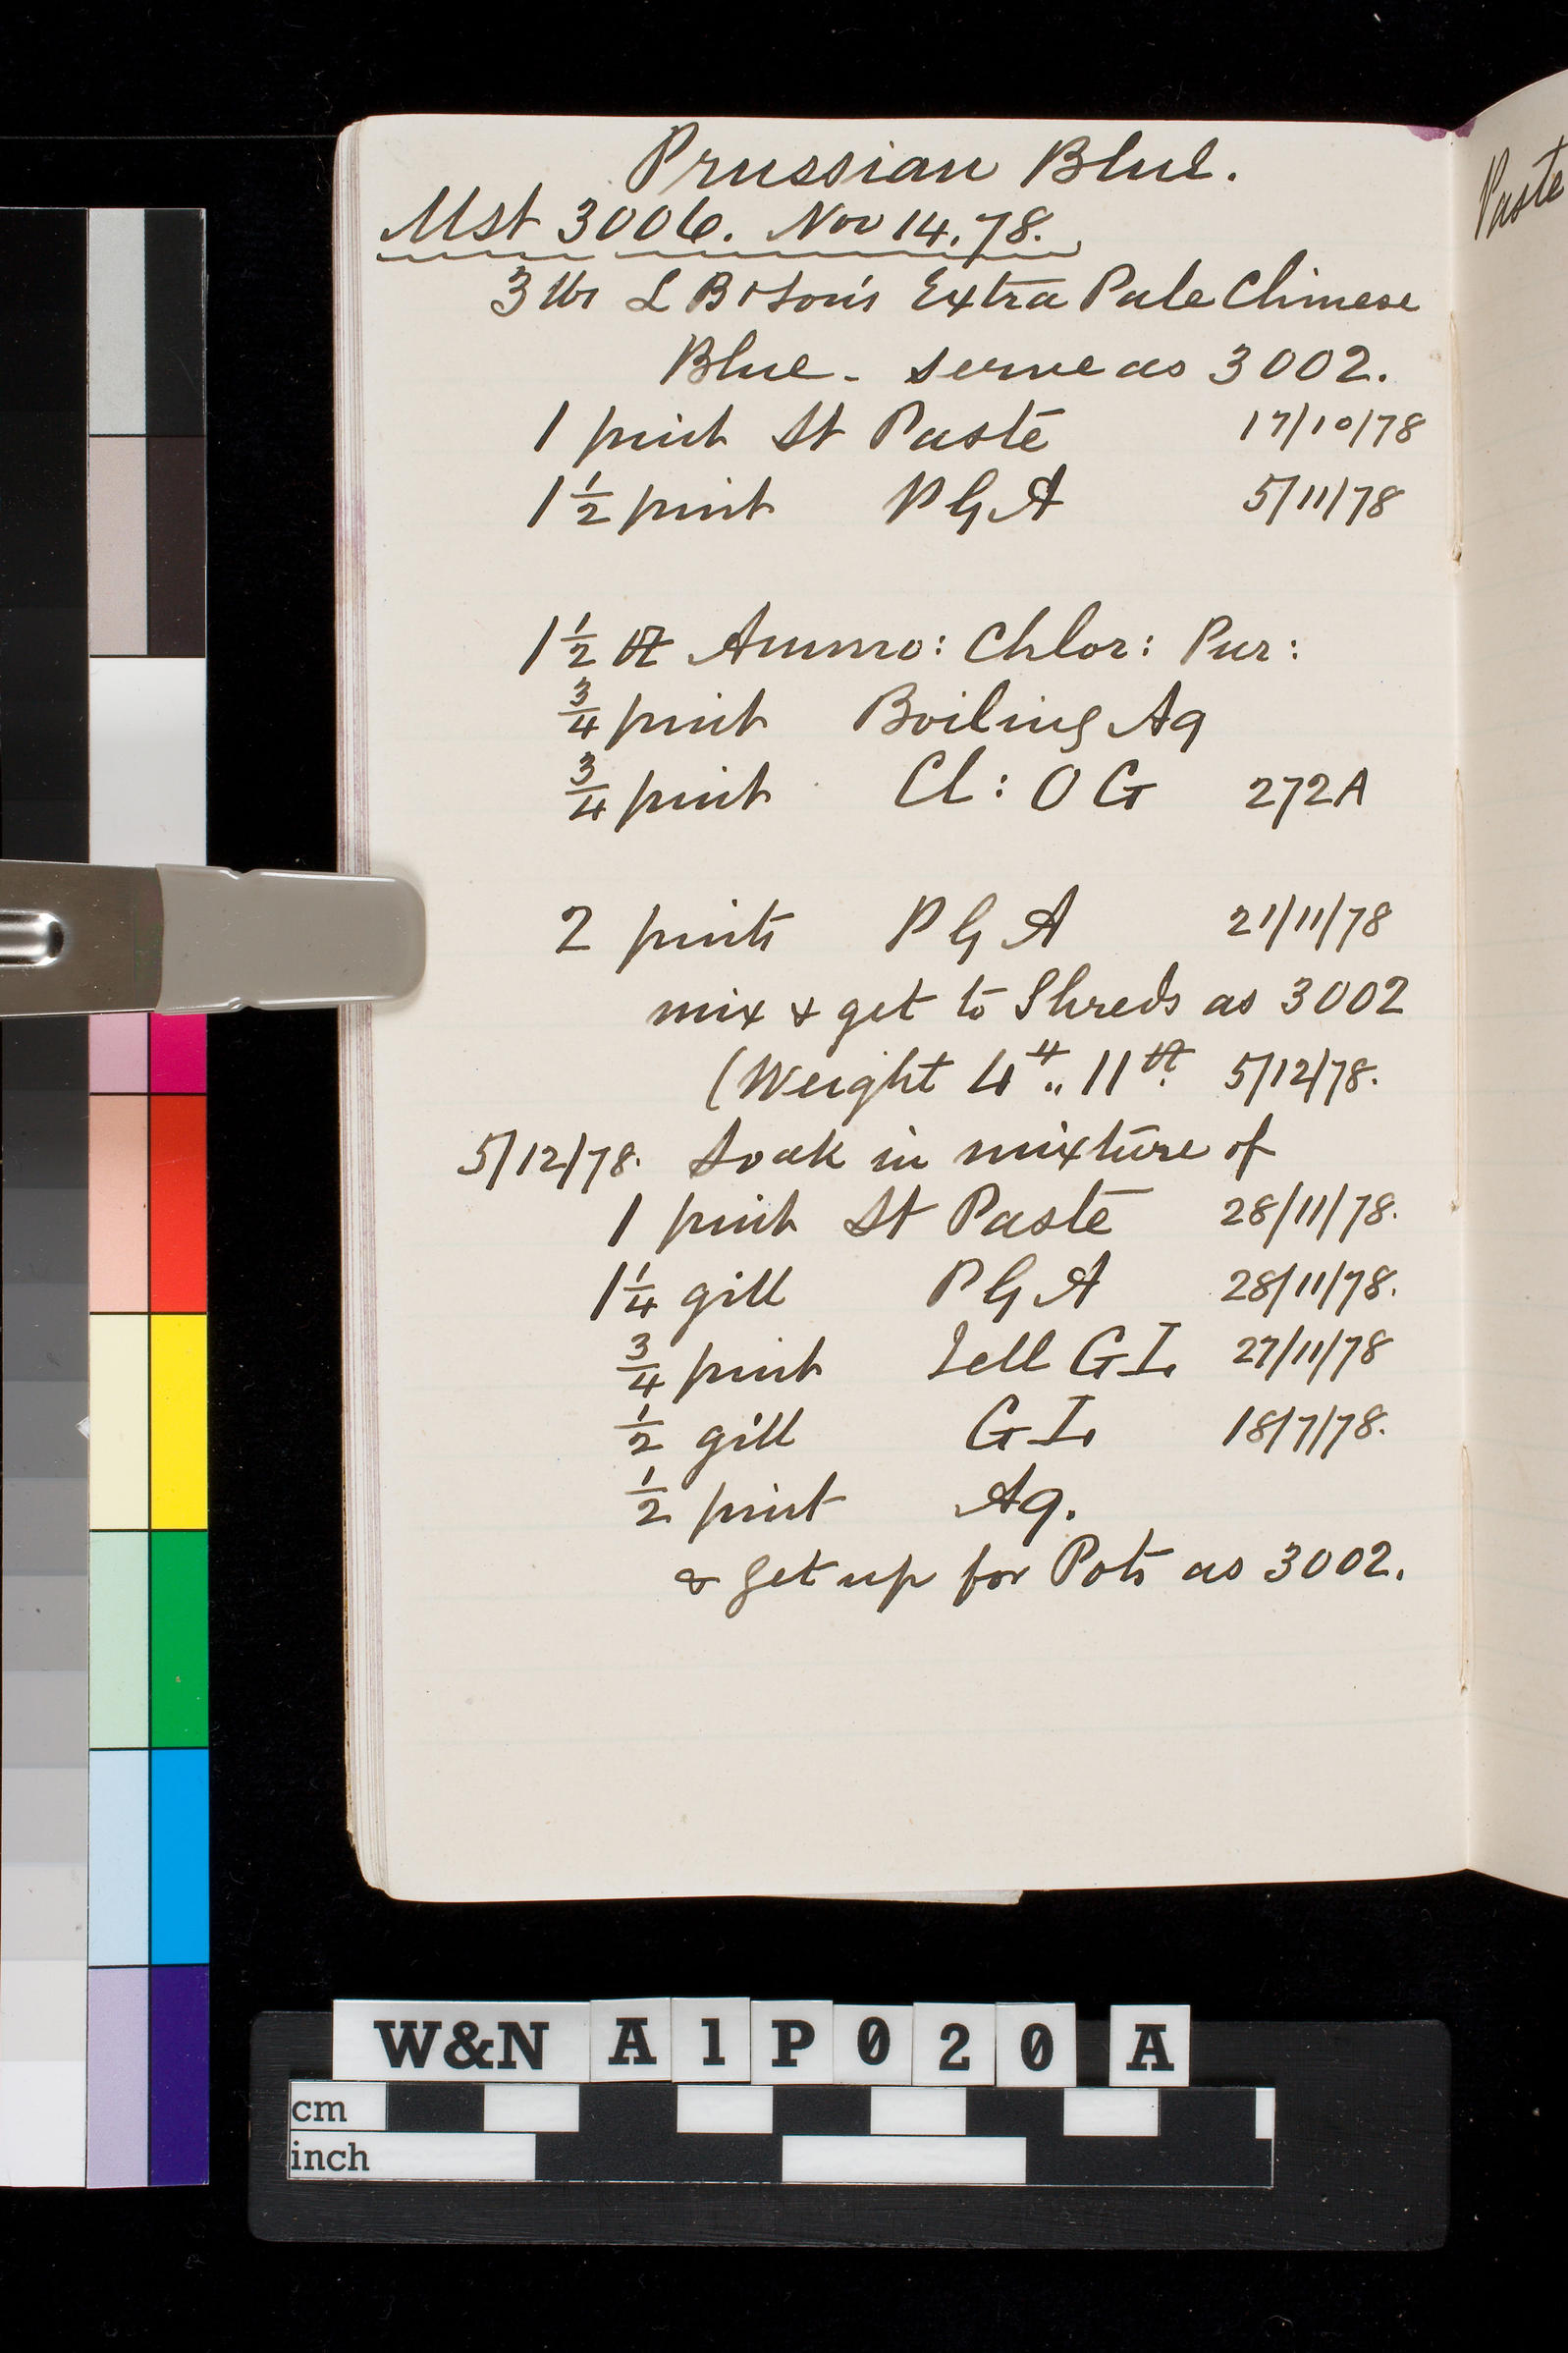 Prussian Blue.
Mst 3006. Nov 14. 78.
3 lbs L B & Son's Extra Pale Chinese
Blue - serve as 3002.
1 pint St Paste 17/10/78
1 1/2 pint P G A 5/11/78
1 1/2 Ammo: Chlor: Pur:
3/4 pint Boiling Aq
3/4 pint Cl: O G 272A
2 pints P G A 21/11/78
mix & get to Shreds as 3002
(Weight 4 .. 11 5/12/78.
5/12/78. Soak in mixture of
1 pint St Paste 28/11/78.
1 1/4 gill P G A 28/11/78.
3/4 pint Jell G I. 27/11/78
1/2 gill G I. 18/7/78.
1/2 pint Aq.
& get up for Pots as 3002.
Paste
W&N A1P020 A
cm
inch